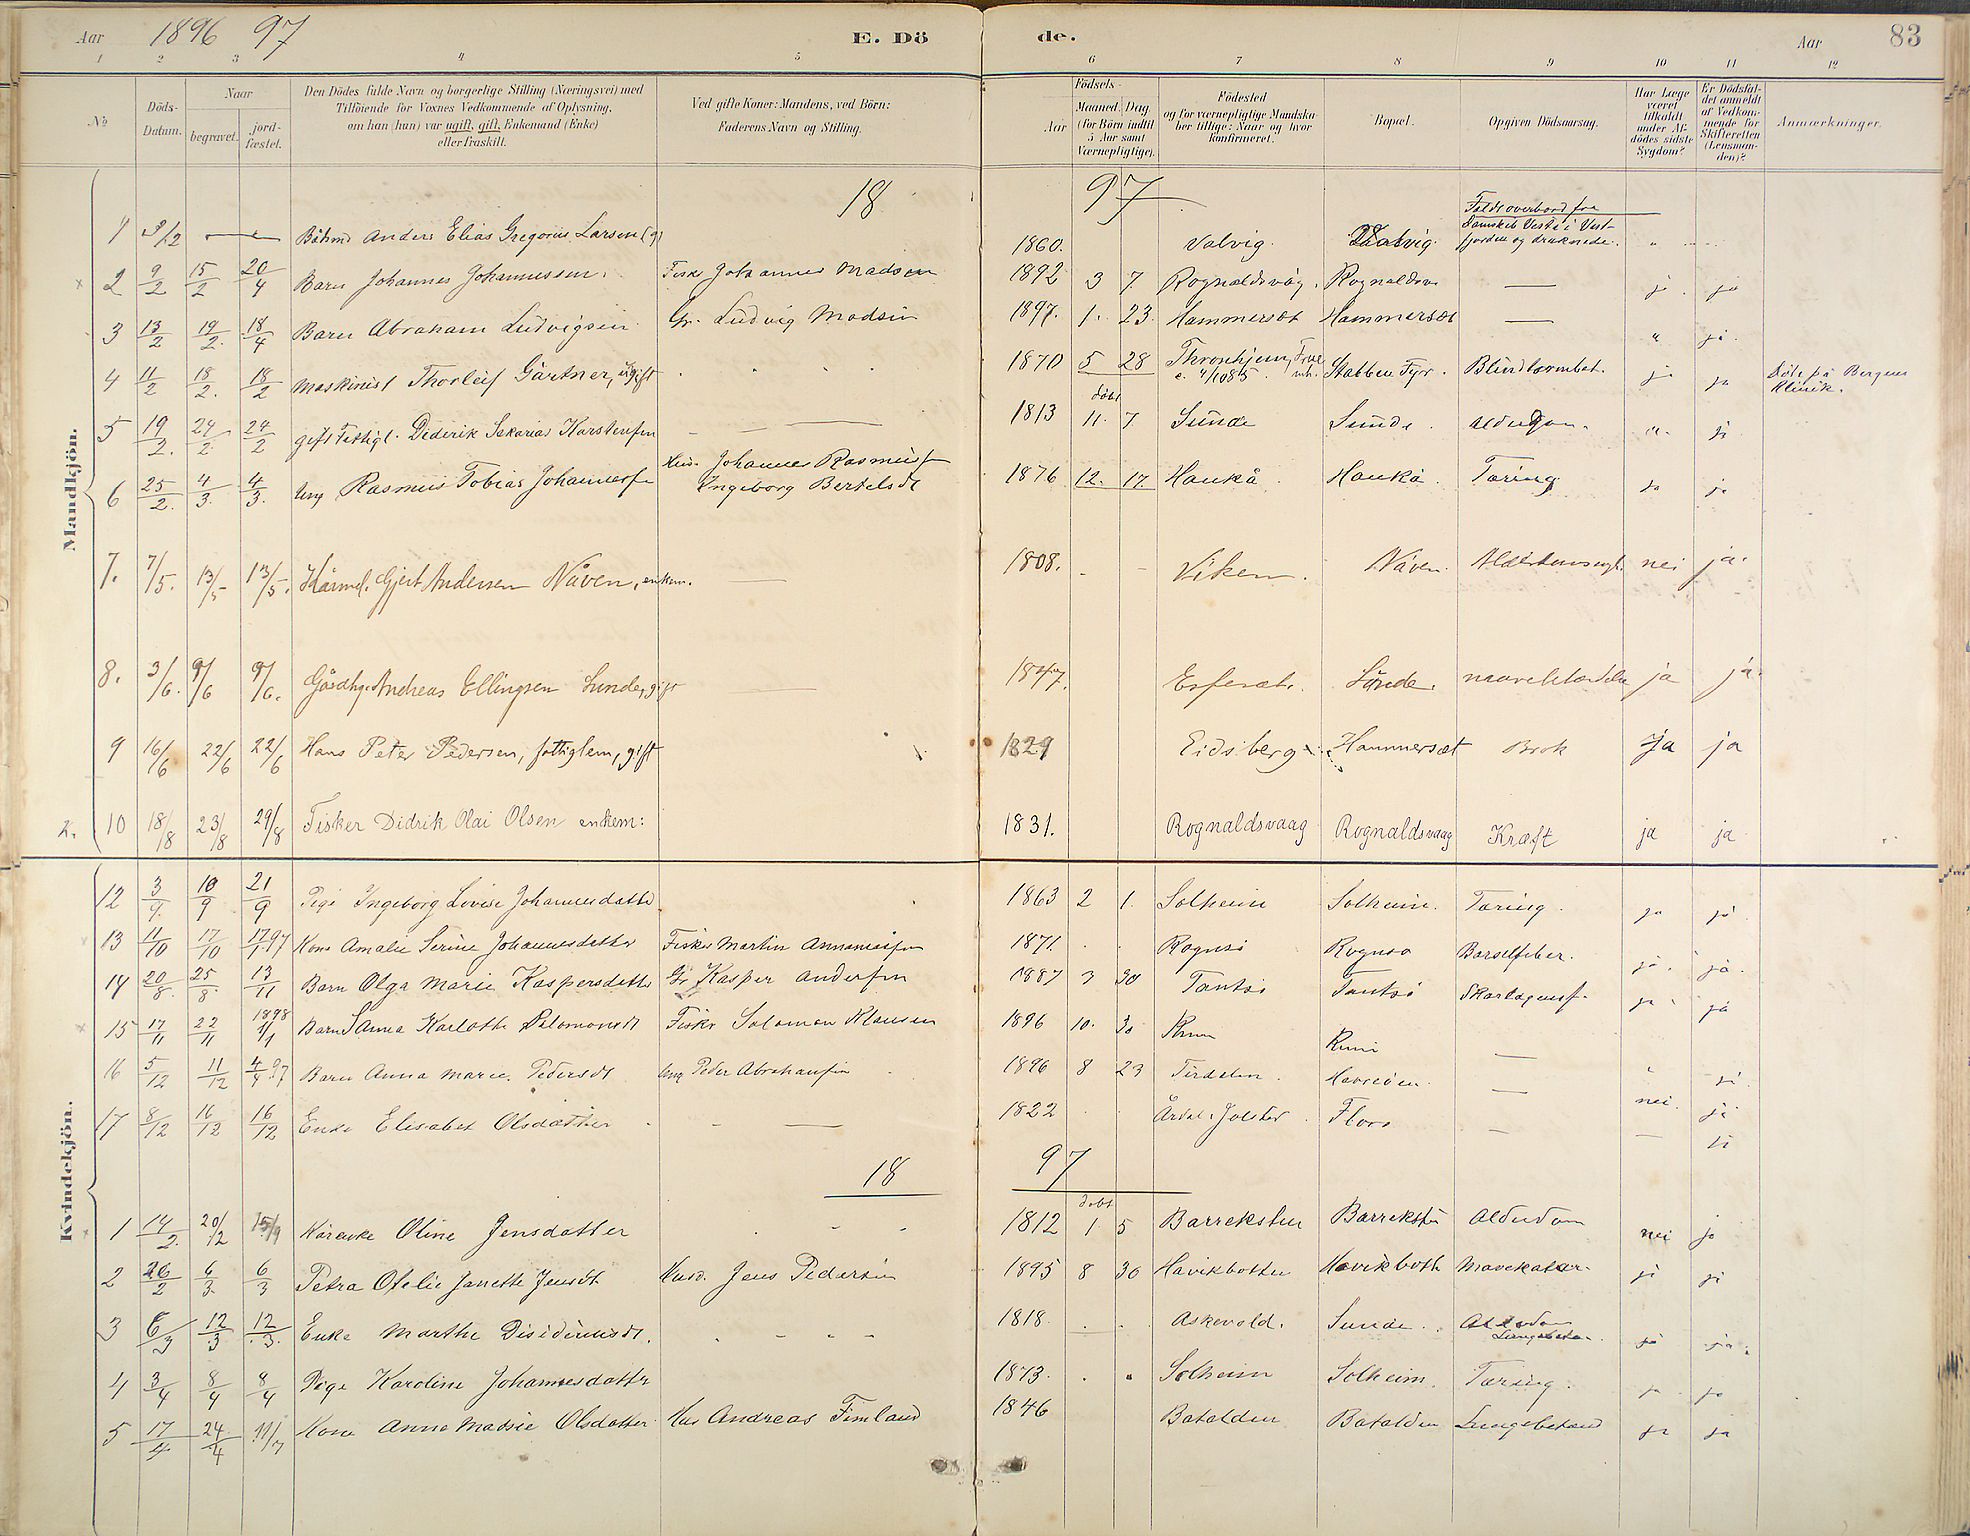 Aar 1896 97 E. Dö de. Aar 83
1 2 3 4 5 6 7 8 9 10 11 12
No
Döds-Datum.
Naar
begravet.
jord-fæstet.
Den Dödes fulde Navn og borgerlige Stilling (Næringsvei) med
Tilföiende for Voxnes Vedkommende af Oplysning,
om han (hun) var ugift, gift, Enkemand (Enke)
eller fraskilt.
Ved gifte Koner: Mandens, ved Börn:
Faderens Navn og Stilling.
Födsels-
Aar
Maaned. Dag
(for Börn indtil
5 Aar samt
Værnepligtige).
Födested
og for værnepligtige Mandska-
ber tillige: Naar og hvor
konfirmeret.
Bopæl.
Opgiven Dödsaarsag.
Har Læge
været
tilkaldt
under Af-
dödes sidste
Sygdom?
Er Dödsfal-
det anmeldt
af Vedkom-
mende for
Skifteretten
(Lensman-
den)?
Anmærkninger.
Mandkjön.
18 97
1 3/2 — Anders Elias Gregorius Larsen (g) 1860. Valvig. Valvig. Faldt overbord fra Damskib Vesta i Vestfjorden og druknede. "
2 9/2 15/2 20/4 Barn Johannes Johannessen. Fisker Johannes Madsen 1892 3 7. Rognaldsvåg. Rognaldsv. — ja ja
3 13/2 19/2. 18/4 Barn Abraham Ludvigsen Gr. Ludvig Madsen 1897. 1. 23. Hammerset Hammerset — " ja.
4 11/2 18/2. 18/2 Maskinist Thorleif Gärtner, ugift 1870 5 28 Thronhjem, Stabben Fyr. Blindtarmbet. ja ja Döde på Bergens Klinik.
5 19/2. 24/2 24/2 gift Fattigl. Diderik Sakarias Karstensen — 1813 döbt 11. 7. Sunde Sunde. Alderdom. ja
6 25/2. 4/3. 4/3. Ung Rasmus Tobias Johanness. Hus. Johannes Rasmuss Ingeborg Bertelsdt 1876 12. 17. Haukå. Haukå. Tæring ja ja
7. 7/5. 13/5 13/5. Kårmd. Gjert Andersen Nåven, enkem. — 1808. Viken. Nåven. nei ja.
8. 3/6. 9/6 9/6. Gårdbr. Andreas Ellingsen Sunde, gift — 1847. Sunde. ja ja.
9 16/6 22/6 22/6 Hans Peter Pedersen, fattiglem, gift 1829 Eidsberg Hammersæt Brok Ja ja
2. 10 18/8 23/8 29/8 Fisker Didrik Olai Olsen enkem: 1831. Rognaldsvaag Rognaldsvaag Kræft ja ja
Kvindekjön.
12 3/9. 10/9 21/9 Pige Ingeborg Lovise Johannesdatter 1863 2 1. Solheim Solheim. Tæring. ja ja
13 11/10 17/10 17/1 97 Kone Amalie Serine Johannesdatter Fisker Martin 1871. Rognsö Rognsö Barselfeber. ja. ja.
14 20/8. 25/8. 13/11 Barn Olga Marie Kaspersdatter Gr Kasper Andersen 1887 3 30 Tantsö Tantsö Skarlagensf. ja ja
15 17/11 22/11 1898 1/1 Barn Sanna Karlotte Salomonsdt Fisker Salomon Klausen 1896 10. 30 —
16 5/12 11/12 4/4 97 Barn Anna Marie Pedersdt Ung Peder Abrahamsen 1896 8 23 — nei. ja
17 8/12 16/12 16/12 Enke Elisabet Olsdatter — 1822 Årdal i Jölster. Florö — — ja
18 97
1 14/2. 20/2 15/9 Kårenke Oline Jensdatter 1812 döbt 1 5 Barreksten Barreksten Alderdom nei ja
2 26/2 6/3. 6/3 Petra Ofelie Janette Jensdt Husm. Jens Pedersen 1895 8 30 Havikbotten Havikbotn Mavekatar. ja ja
3 6/3 12/3 12/3. Enke Marthe 1818. Askevold. Sunde. Alderdom Lungebetæn. ja ja.
4 3/4 8/4 8/4 Pige Karoline Johannesdatter 1873. Solheim Solheim. Tæring. ja ja
5 17/4. 24/4 11/7 Kone Anne Madsie Olsdatter Hus Andreas Timland 1846 Batalden Batalden Lungebetænd ja ja